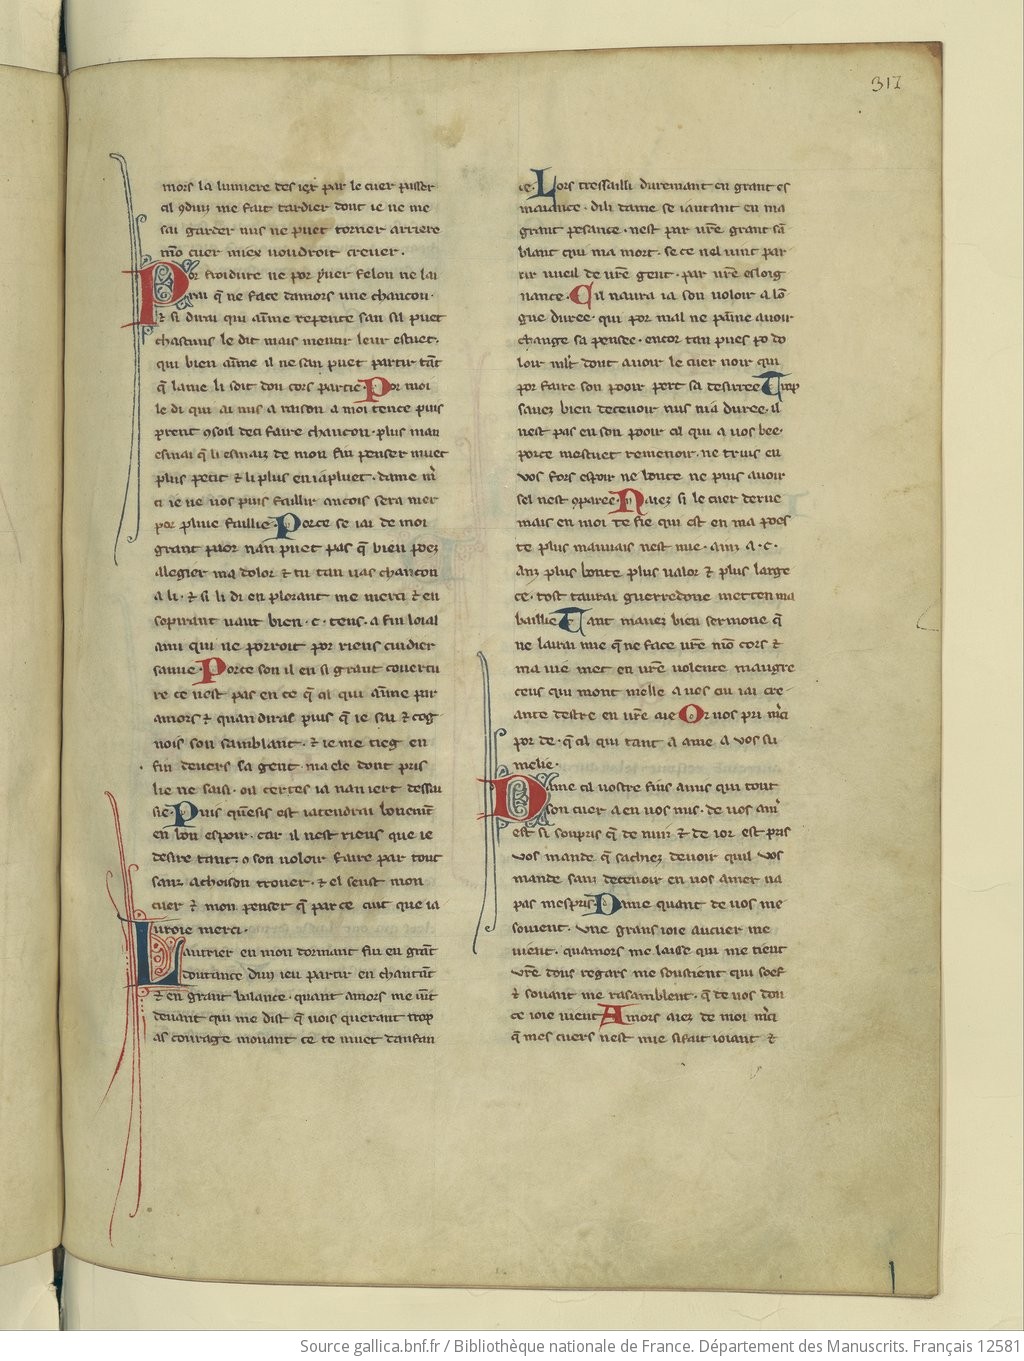 317
mors la lumiere des iex par le cuer passer
cil 9duiz me fait tardier dont ie ne me
sai garder nus ne puet torner arriere
mō cuer miex uoudroit creuer.
Por froidure ne por yuer felon ne lai
rai q̄ ne face damors une chancon.
⁊ si dirai qui aīme repente san sil puet
chascuns le dit mais mentir leur estuet.
qui bien aīme il ne san puet partir tāt
q̄ lame li soit dou cors partie. Por moi
le di qui ai mis a raison a moi tence puis
prent 9soil deci faire chancon. plus mau
esmai q̄ li esmaiz de mon fin penser muet
plus petit ⁊ li plus en iapluet. dame m̄
ci ie ne uos puis faillir ancois sera mer
por pluie faillie. Porce se iai de moi
grant paor nan puet pas q̄ bien poez
alegier ma dolor ⁊ tu tan uas chancon
a li. ⁊ si li di en plorant me merci ⁊ en
sopirant uaut bien .c. tens. a fin loial
ami qui ne porroit por riens cuidier
sauue. Porce son il en si grant couertu
re ce nest pas en ce q̄ cil qui aīme par
amors ⁊ quan diras puis q̄ ie sai ⁊ cog
nois son samblant. ⁊ ie me tieg en
fin deuers sa gent. ma ele dont pris
lie ne saisi. ou certes ia nan iert dessai
sie. Puis quensis est iatendrai bonemēt
en bon espoir. car il nest riens que ie
desire tant. 9 son uoloir faire par tout
sanz achoison trouer. ⁊ el seust mon
cuer ⁊ mon penser q̄ par ce cuit que ia
uroie merci.
Lautrier en mon dormant fui en grāt
doutance dun ieu partir en chantāt
⁊ en grant balance. quant amors me uīt
deuant qui me dist q̄ uois querant trop
as courage mouant ce te muet danfan
ce. Lors tressailli durement en grant es
maiance. dili dame se iautant en ma
grant pesance. nest par ur̄e grant sā
blant qui ma mort. se ce nel uint par
tir uueil de ur̄e gent. par ur̄e esloig
nance. Cil naura ia son uoloir a lō
gue duree. qui por mal ne paīne auoir
change sa pensee. encor tan pues po do
loir mlt̄ dont auoir le cuer noir qui
por faire son pooir pert sa desirree. Trop
sauez bien deceuoir mis mā duree. il
nest pas en son pooir cil qui a uos bee.
porce mestuet remenoir. ne truis en
vos fors espoir ne bonte ne puis auoir
sel nest 9paree. Naiez si le cuer derue
mais en moi te fie qui est en ma poes
te plus mauuais nest mie. ainz a .c.
anz plus bonte plus ualor ⁊ plus large
ce. tost taurai guerredone metten ma
baillie. Tant mauez bien sermone q̄
ne laurai mie q̄ ne face ur̄e mō cors ⁊
ma uie met en ur̄e uolente maugre
ceus qui mont melle a uos en iai cre-
ante destre en ur̄e aie. Or uos pri m̄ci
por de. q̄ cil qui tant a ame a vos su
melie.
Dame cil uostre fins amis qui tout
son cuer a en uos mis. de uos am̄
est si soupris q̄ de nuit ⁊ de ior est pris
vos mande q̄ sachiez deuoir quil vos
mande sanz deceuoir en uos amer na
pas mespris. Dame quant de uos me
souient. vne grans ioie au cuer me
uient. quamors me laisse qui me tient
vr̄e douz regars me soustient qui soef
⁊ souant me rasamblent. q̄ de uos dou
ce ioie uient. Amors aiez de moi m̄ci
q̄ mes cuers nest mie si fait ioiant ⁊
Source gallica.bnf.fr / Bibliothèque nationale de France. Département des Manuscrits. Français 12581